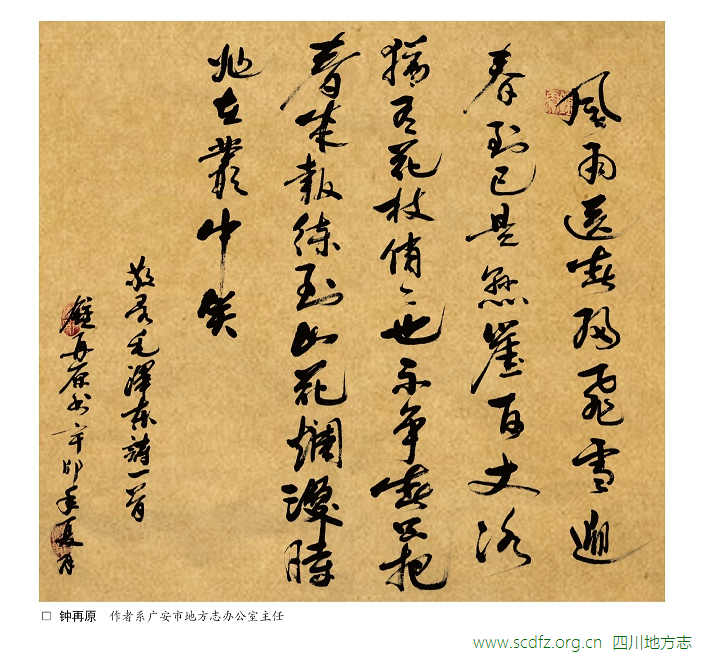 風雨送春歸飛雪迎
春到已是懸崖百丈冰
猶有花枝俏々也不争春只把
春来報待到山花爛漫時
她在叢中笑
敬書毛澤東詩一首
鍾再原书辛卯年夏月
□ 钟再原 作者系广安市地方志办公室主任
www.scdfz.org.cn 四川地方志